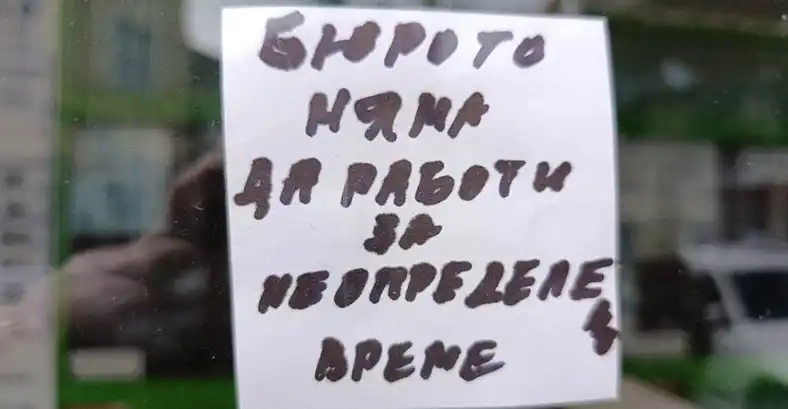 БЮРОТО
НЯМА
ДА РАБОТИ
ЗА
НЕОПРЕДЕЛЕ
ВРЕМЕ